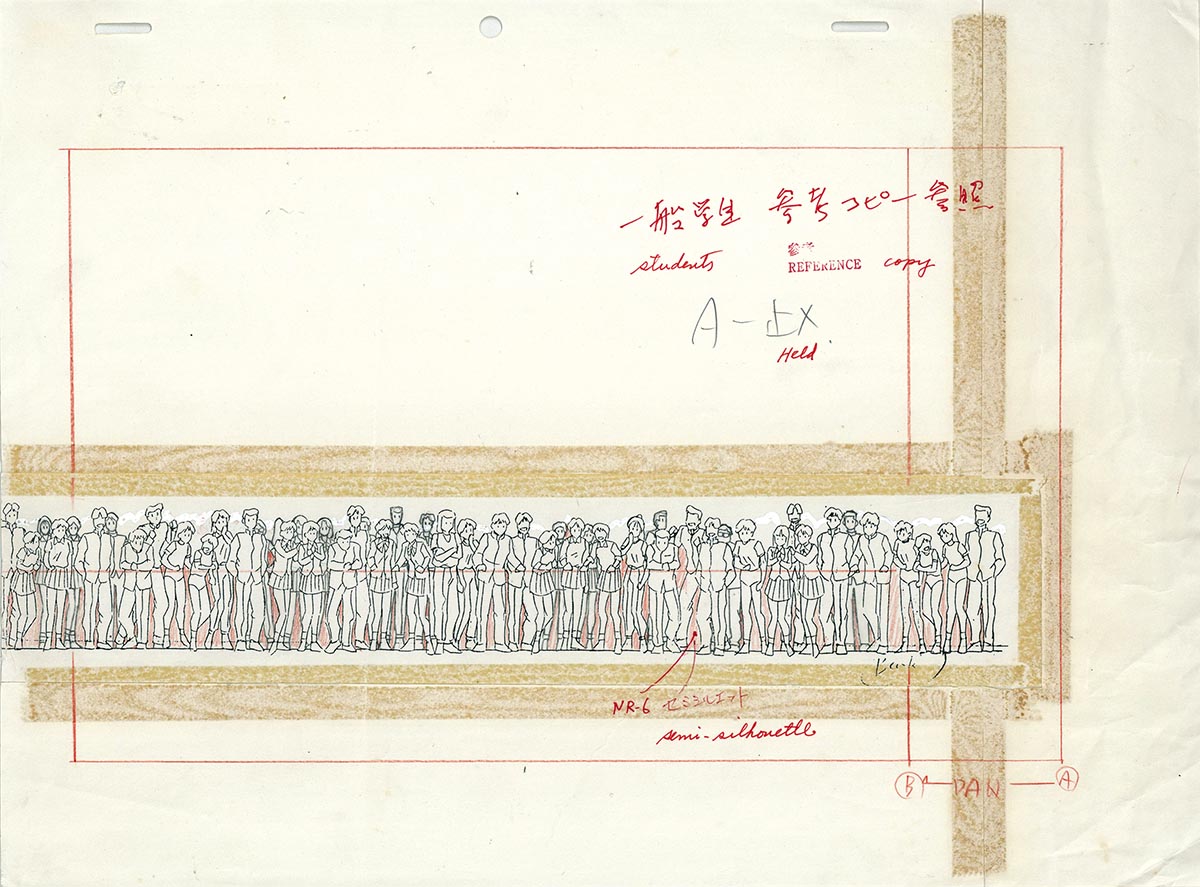 一般学生 参考コピー参照
students 参考 REFERENCE copy
A-止メ
Held
NR-6 セミシルエット
semi-silhouette
B ← PAN — A